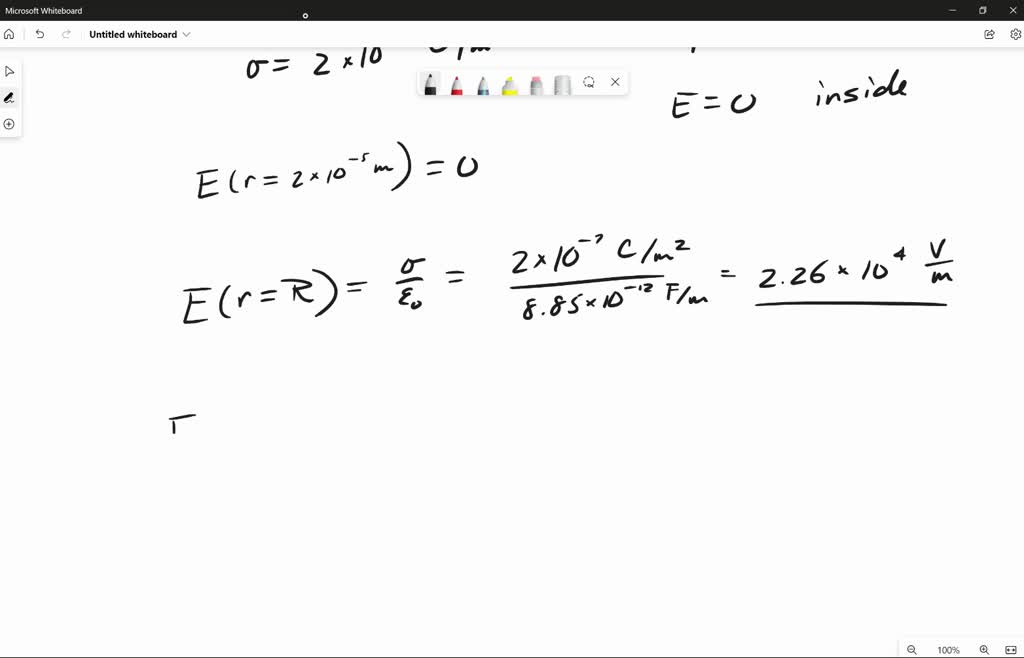 Microsoft Whiteboard
Untitled whiteboard
σ = 2 × 10
E = 0 inside
E(r = 2 × 10⁻⁵ m) = 0
E(r = R) = σ/ε₀ = 2 × 10⁻⁷ C/m² / 8.85 × 10⁻¹² F/m = 2.26 × 10⁴ V/m
100%